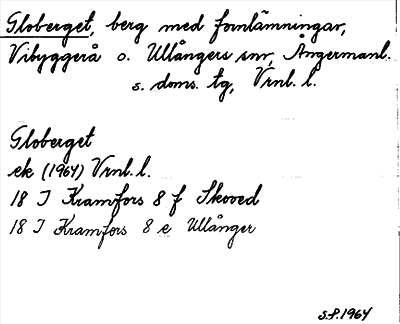 Globerget, berg med fornlämningar,
Vibyggerå o. Ullångers snr, Ångermanl.
s. doms. tg, Vrnl. l.
Globerget
ek (1964) Vrnl. l.
18 I Kramfors 8 f Skoved
18 I Kramfors 8 e Ullånger
s.f. 1964